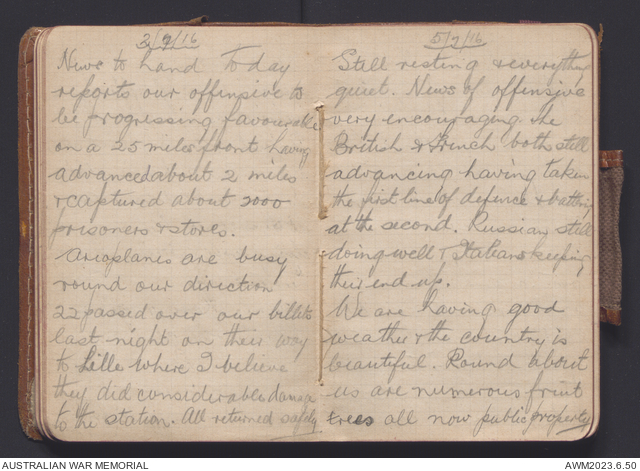 3/7/16
News to hand Today
reports our offensive to
be progressing favourable
on a 25 miles front having
advanced about 2 miles
& captured about 2000
prisoners & stores.
Aeroplanes are busy
round our direction
22 passed over our billets
last night on their way
to Lille where I believe
they did considerable damage
to the station. All returned safely.
5/7/16
Still resting & everything
quiet. News of offensive
very encouraging the
British & French both still
advancing having taken
the first line of defence & battling
at the second. Russians still
doing well & Italians keeping
their end up.
We are having good
weather & the country is
beautiful. Round about
us are numerous fruit
trees all now public property
AUSTRALIAN WAR MEMORIAL
AWM2023.6.50